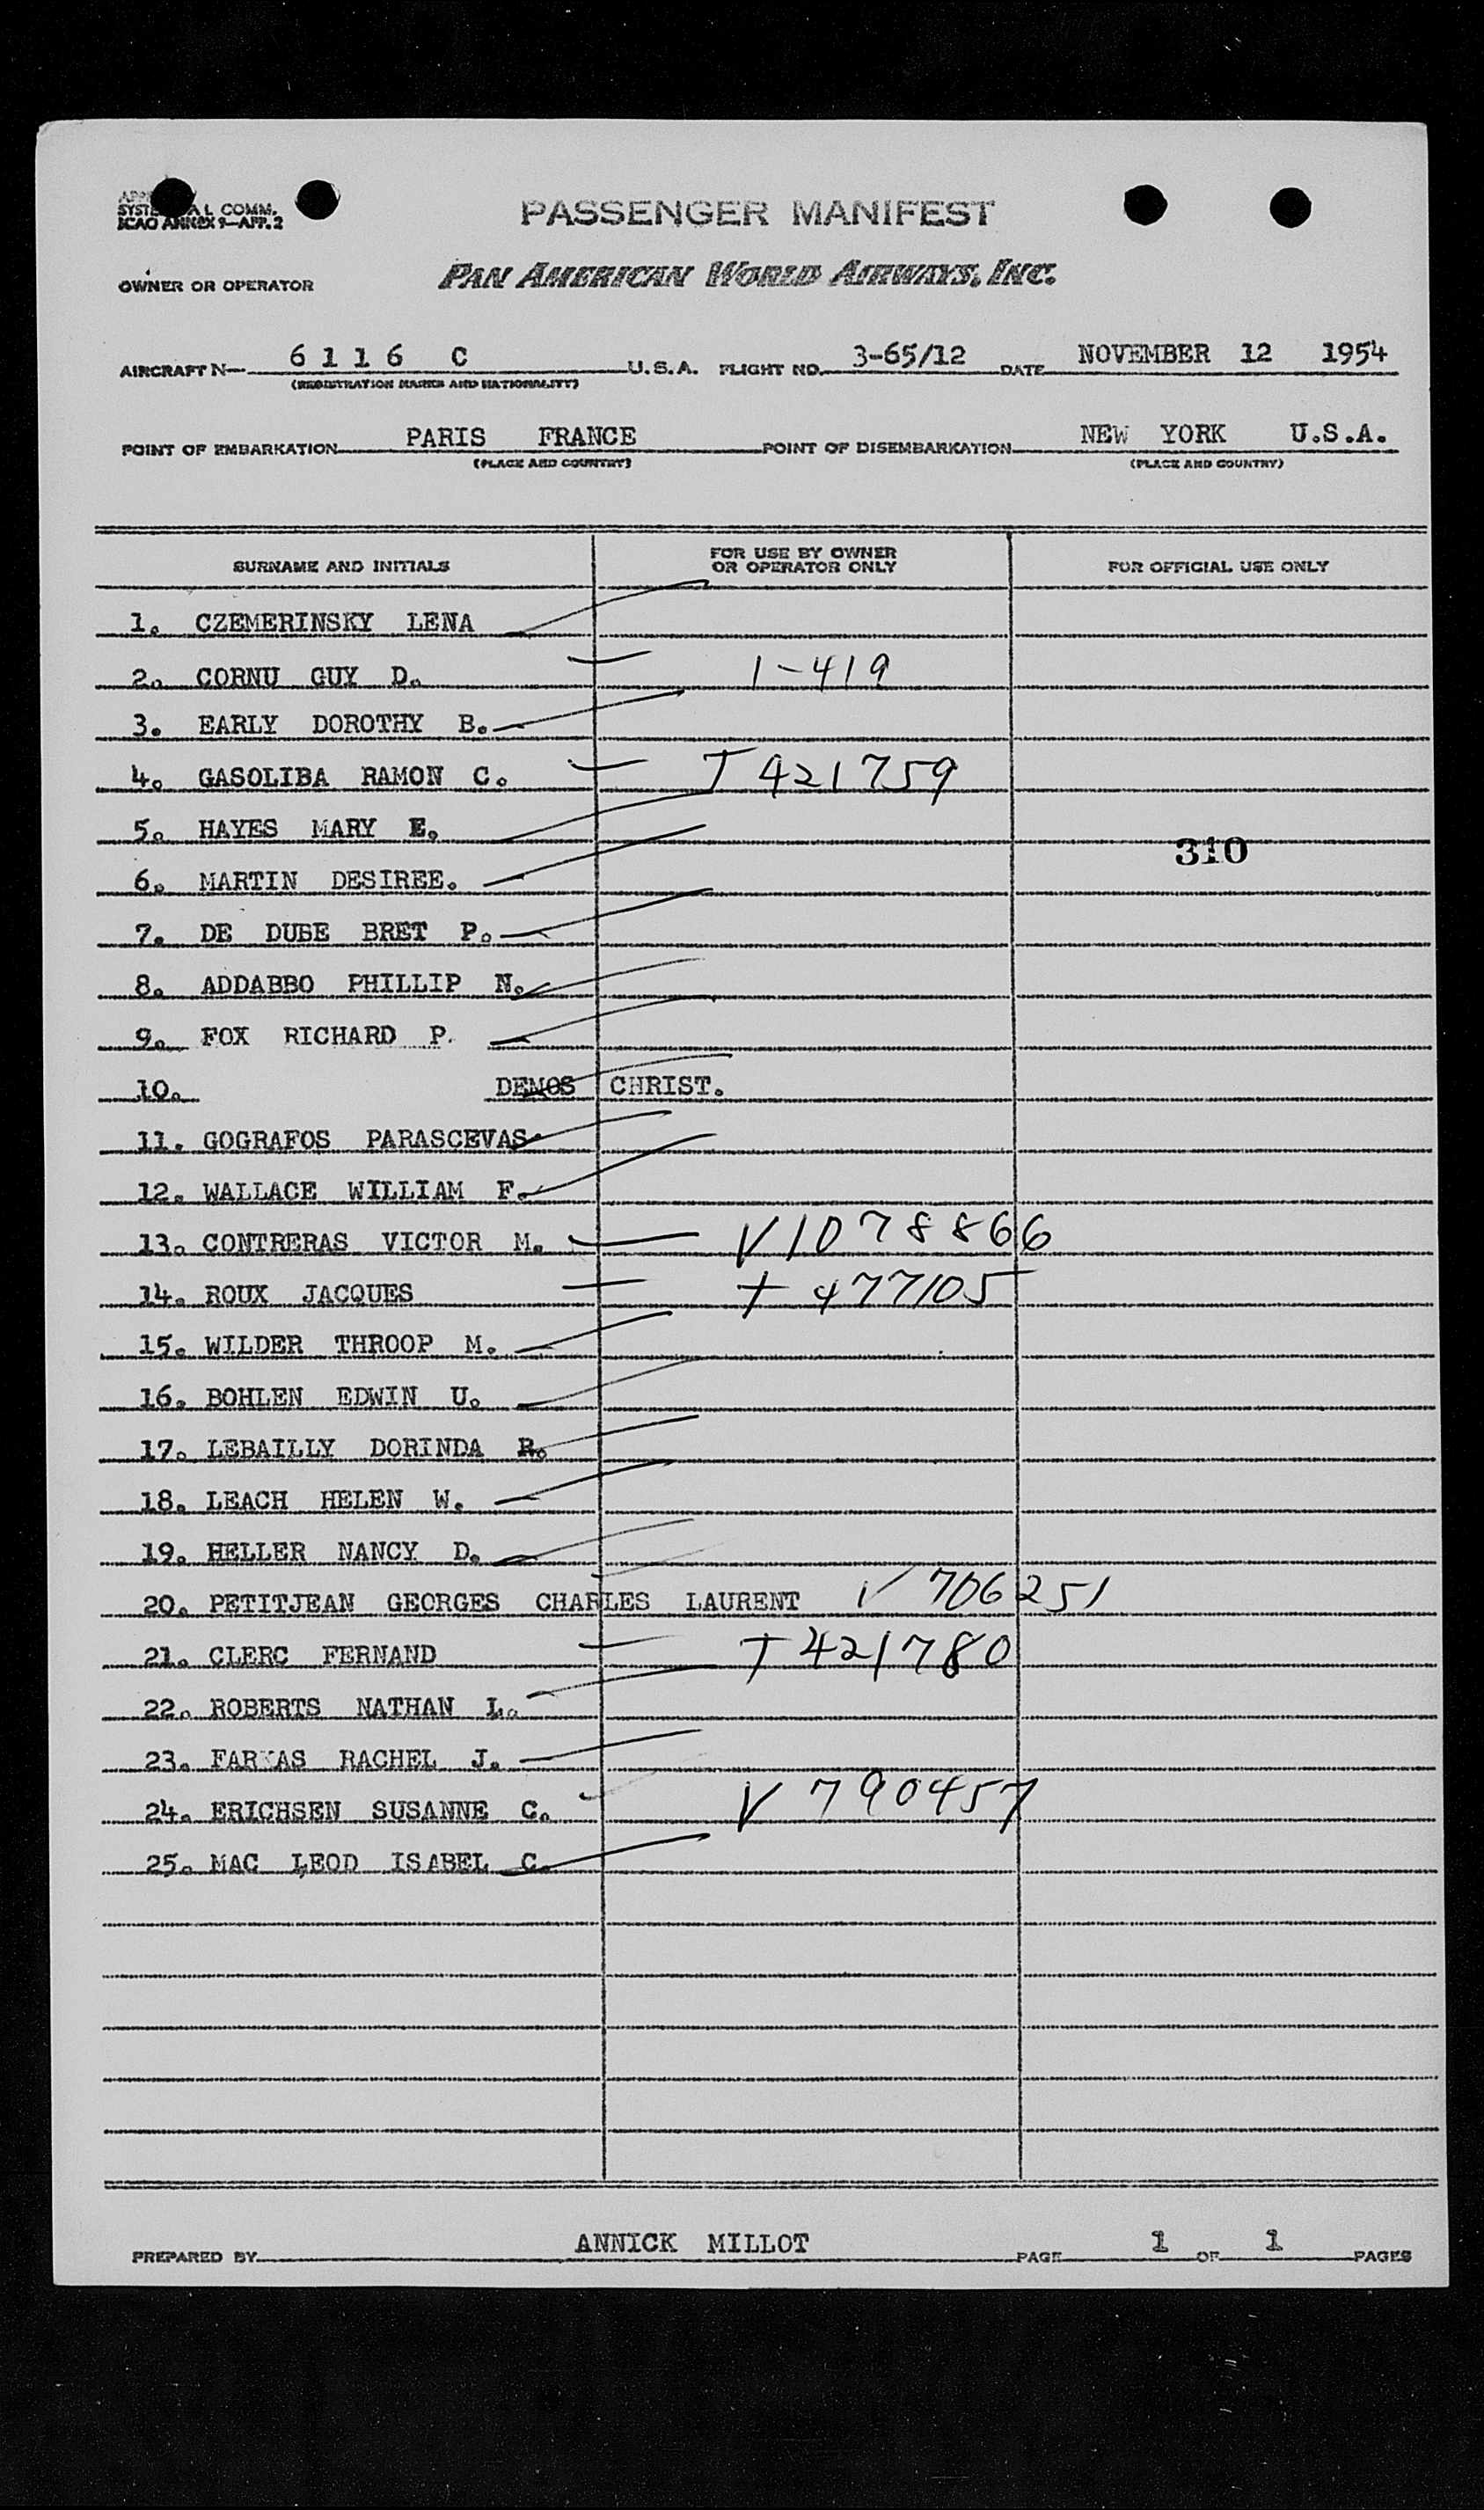 SYSTE AL COMM.
ICAO ANNEX 9—APP. 2
PASSENGER MANIFEST
OWNER OR OPERATOR PAN AMERICAN WORLD AIRWAYS, INC.
AIRCRAFT N— 6 1 1 6 C U.S.A. FLIGHT NO. 3-65/12 DATE NOVEMBER 12 1954
(REGISTRATION MARKS AND NATIONALITY)
POINT OF EMBARKATION PARIS FRANCE POINT OF DISEMBARKATION NEW YORK U.S.A.
(PLACE AND COUNTRY) (PLACE AND COUNTRY)
SURNAME AND INITIALS FOR USE BY OWNER OR OPERATOR ONLY FOR OFFICIAL USE ONLY
1. CZEMERINSKY LENA
2. CORNU GUY D. 1-419
3. EARLY DOROTHY B.
4. GASOLIBA RAMON C. T 421759
5. HAYES MARY E.
310
6. MARTIN DESIREE.
7. DE DUBE BRET P.
8. ADDABBO PHILLIP N.
9. FOX RICHARD P.
10. DEMOS CHRIST.
11. GOGRAFOS PARASCEVAS
12. WALLACE WILLIAM F.
13. CONTRERAS VICTOR M. V1078866
14. ROUX JACQUES T 477105
15. WILDER THROOP M.
16. BOHLEN EDWIN U.
17. LEBAILLY DORINDA R.
18. LEACH HELEN W.
19. HELLER NANCY D.
20. PETITJEAN GEORGES CHARLES LAURENT V 706251
21. CLERC FERNAND T 421780
22. ROBERTS NATHAN L.
23. FARKAS RACHEL J.
24. ERICHSEN SUSANNE C. V 790457
25. MAC LEOD ISABEL C.
PREPARED BY ANNICK MILLOT PAGE 1 OF 1 PAGES